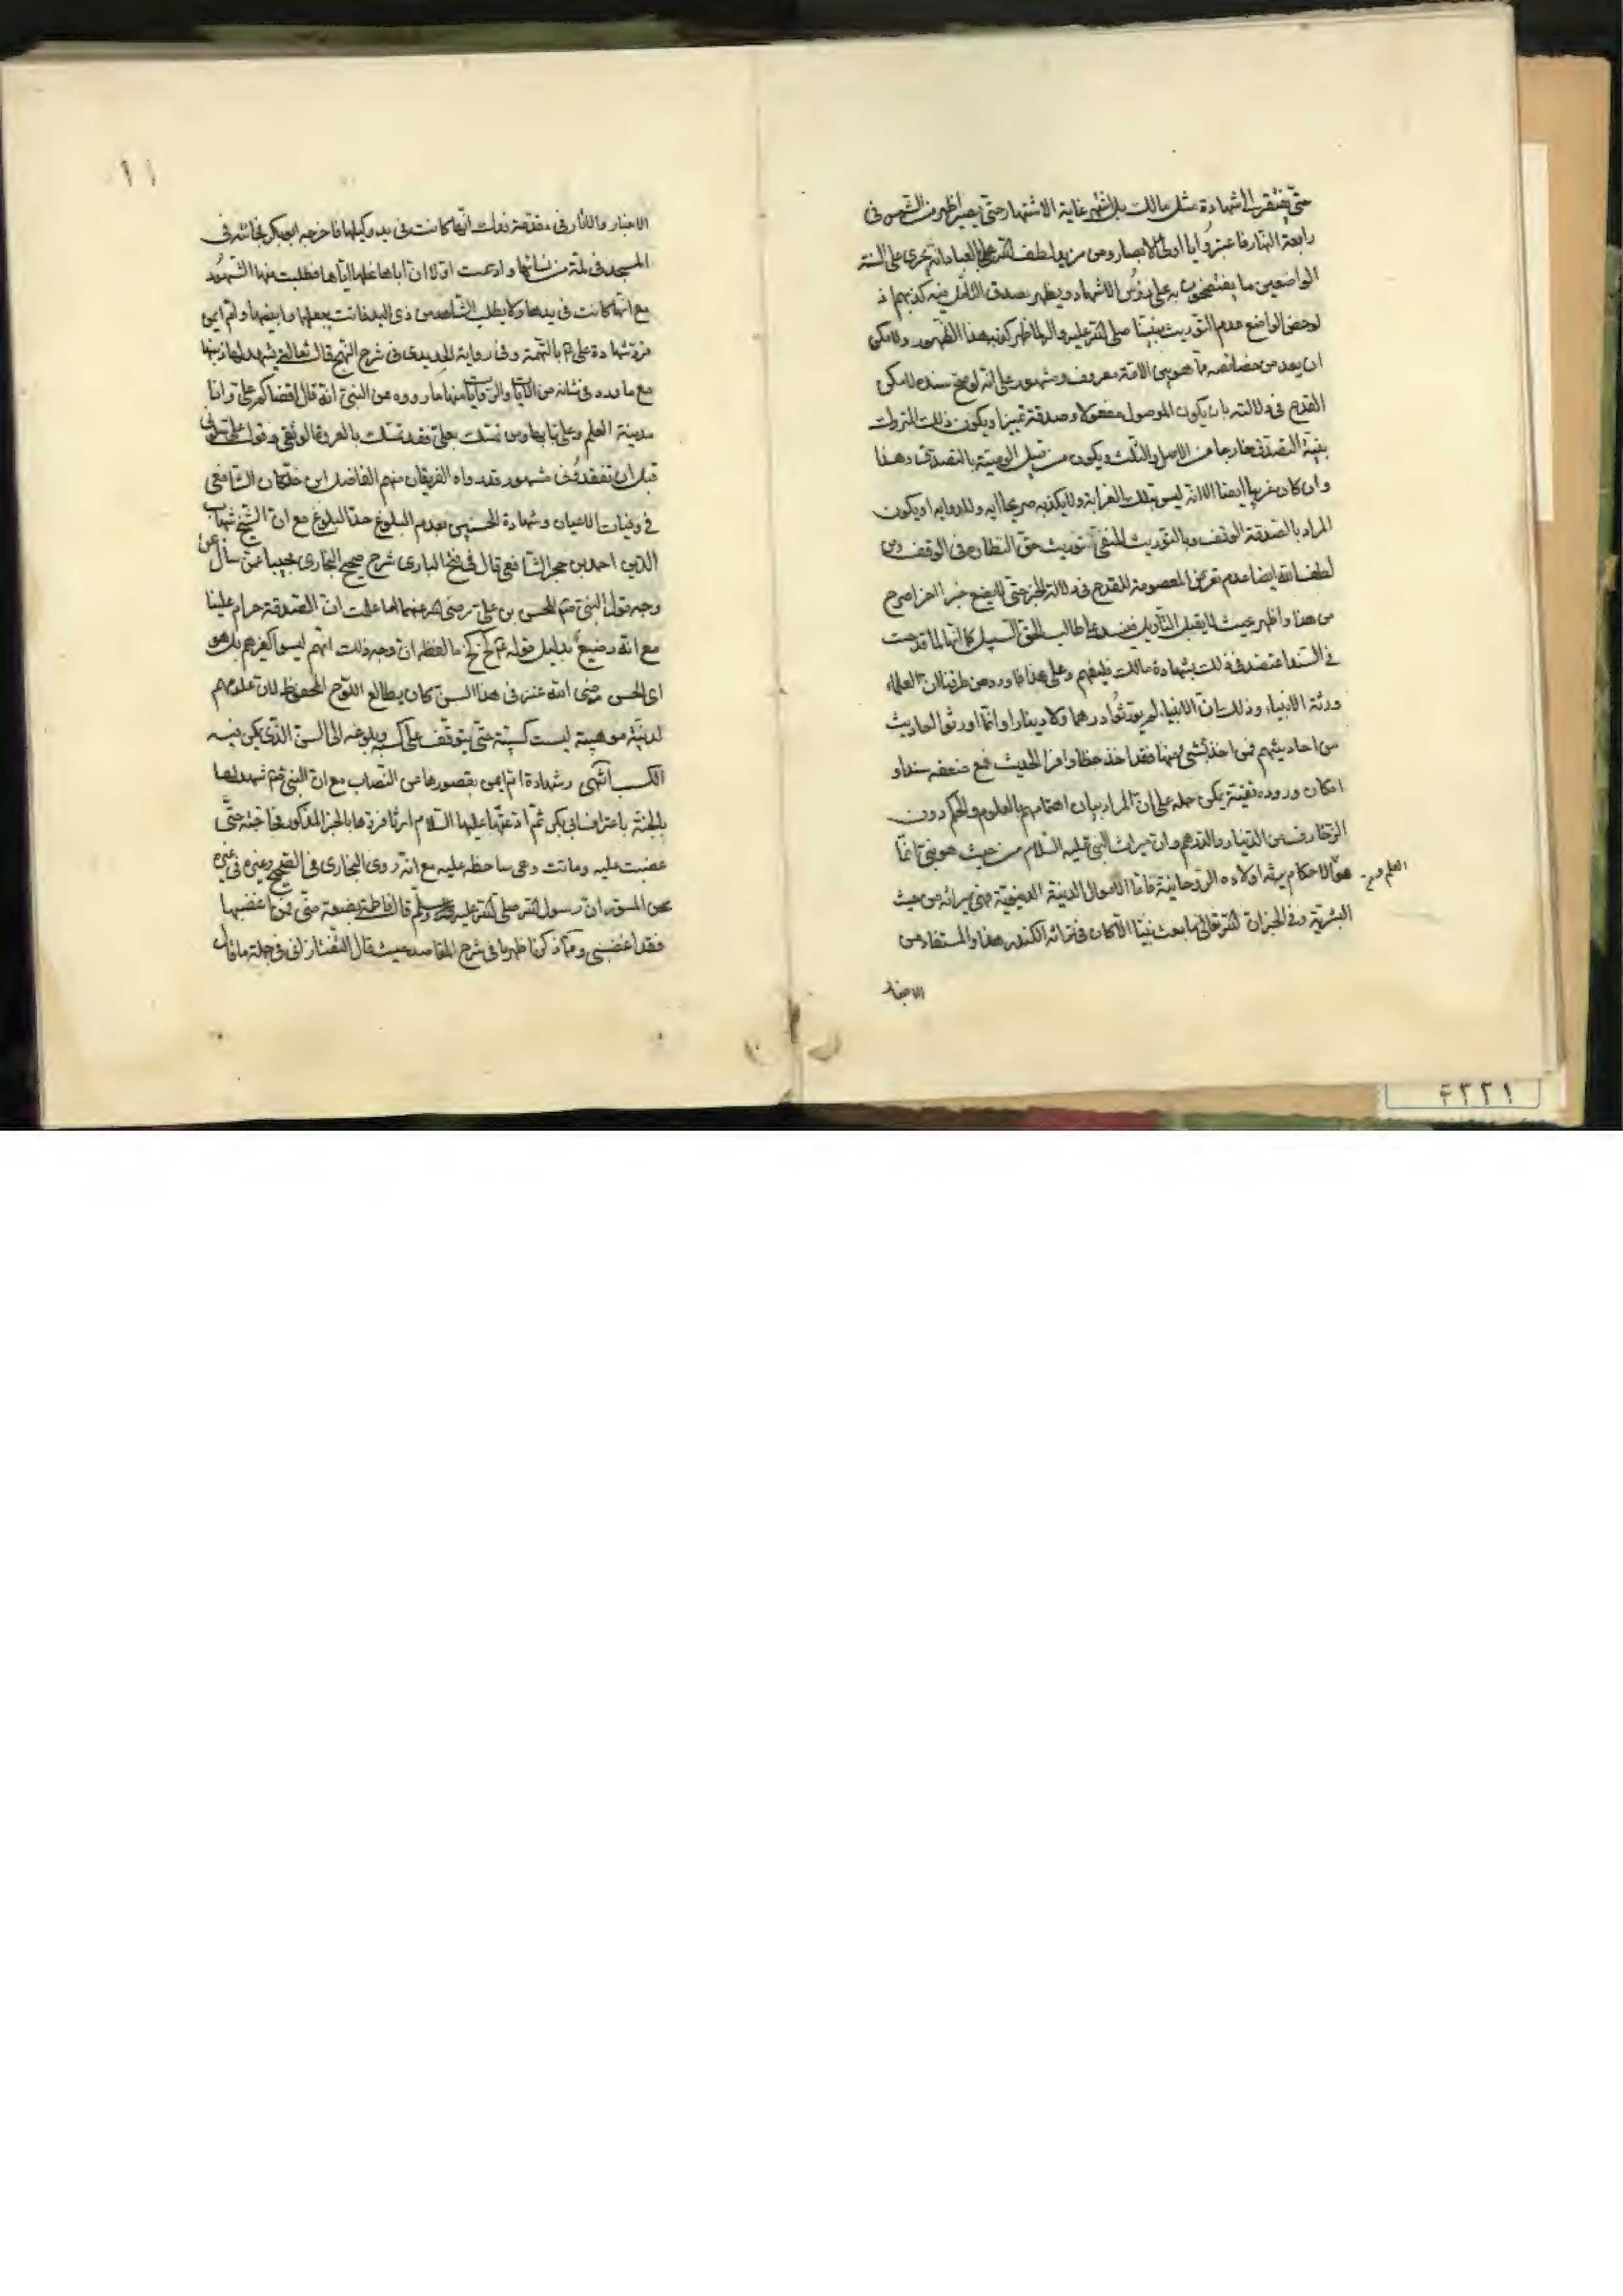 حتى يفتقر الى شهادة مثل مالك بل اشتهر غاية الاشتهار حتى يصير اظهر من الشمس في
رابعة النهار فاعتبروا يا اولى الابصار ومن مزيد لطف الله على العباد انه يجرى على السنة
الواضعين ما يفتضحون به على رؤس الاشهاد ويظهر بصدق التأمل فيه كذبهم اذ
لو خص الواضع عدم التوريث بنبينا صلى الله عليه واله لما ظهر كذبه هذا الظهور ولا يمكن
ان يعد من خصائصه ما هو بين الامة معروف ومشهور على انه لو صح سنده لامكن
القدح في دلالته بان يكون الموصول مفعولا وصدقة تميزا ويكون ذلك المتروك
بنية التصدق خارجا من الاصل والثلث ويكون من قبيل الوصية بالتصدق وهذا
وان كان غريبا ايضا الا انه ليس بتلك الغرابة ولا يكذبه صريحا اية ولا رواية او يكون
المراد بالصدقة الوقف وبالتوريث المنفي توريث حق النظارة في الوقف ومن
لطف الله ايضا عدم تعرض المعصومة للقدح في دلالة الخبر حتى لا يضع خبر اخر اصرح
من هذا واظهر بحيث لا يقبل التأويل فينسد على طالب الحق السبيل كما انها لما قدحت
في السند اعتضد في ذلك بشهادة مالك فليفهم وعلى هذا فما ورد من طرقنا ان العلماء
ورثة الانبياء وذلك ان الانبياء لم يورثوا درهما ولا دينارا وانما اورثوا احاديث
من احاديثهم فمن اخذ بشئ منها فقد اخذ حظا وافرا الحديث فمع ضعفه سندا و
امكان وروده تقية يمكن حمله على ان المراد بيان اهتمامهم بالعلوم والحكم دون
الزخارف من الدينار والدرهم وان ميراث النبي عليه السلام من حيث هو نبي انما
هو الاحكام يرثه اولاده الروحانية فاما الاموال الدنية الدنيوية فهي ميراثه من حيث
العلم و
البشرية وفي الخبر ان الله تعالى ما بعث نبيا الا كان في زمانه هذا والمستفاد من
الاخبار
١١
الاخبار والاثار في مقدمة فدك انها كانت في يد وكيلها فاخرجه ابو بكر فجائته في
المسجد في لمة من نسائها وادعت اولا ان اباها نحلها اياها فطلبت منها الشهود
مع انها كانت في يدها ولا يطلب الشاهد من ذى اليد فاتت ببعلها وابنيها وام ايمن
فرد شهادة على ع بالتهمة وفي رواية الحديدى في شرح النهج قال ثعالة شهيد لها ذنبها
مع ما ورد في شانه من الايات والروايات منها ما رووه عن النبي انه قال اقضاكم على وانا
مدينة العلم وعلى بابها ومن تمسك بعلى فقد تمسك بالعروة الوثقى وقول على سلونى
قبل ان تفقدونى مشهور قد رواه الفريقان منهم الفاضل ابن خلكان الشافعي
في وفيات الاعيان وشهادة الحسنين بعدم البلوغ حد البلوغ مع ان الشيخ شهاب
الدين احمد بن حجر الشافعي قال في فتح البارى شرح صحيح البخارى مجيبا عمن سأل عن
وجه قول النبي للحسن بن على رضى الله عنهما اما علمت ان الصدقة حرام علينا
مع انه رضيع بدليل قوله كخ كخ ما لفظه ان وجه ذلك انهم ليسوا كغيرهم بل هو
اى الحسن رضى الله عنه في هذا السن كان يطالع اللوح المحفوظ لان علومهم
لدنية موهبية ليست كسبية حتى يتوقف على كسبه وبلوغه الى السن الذى يمكن فيه
الكسب انتهى وشهادة ام ايمن بقصورها عن النصاب مع ان النبي شهد لها
بالجنة باعتراف ابى بكر ثم ادعتها عليها السلام ارثا فردها بالخبر المذكور فحاجته حتى
غضبت عليه وماتت وهى ساخطة عليه مع انه روى البخارى في الصحيح وغيره في غيره
عن المسور ان رسول الله صلى الله عليه وسلم قال فاطمة بضعة منى فمن اغضبها
فقد اغضبني ومما ذكرنا ظهر ما في شرح المقاصد حيث قال التفتازانى في جملة ما قال
١٢٢٤